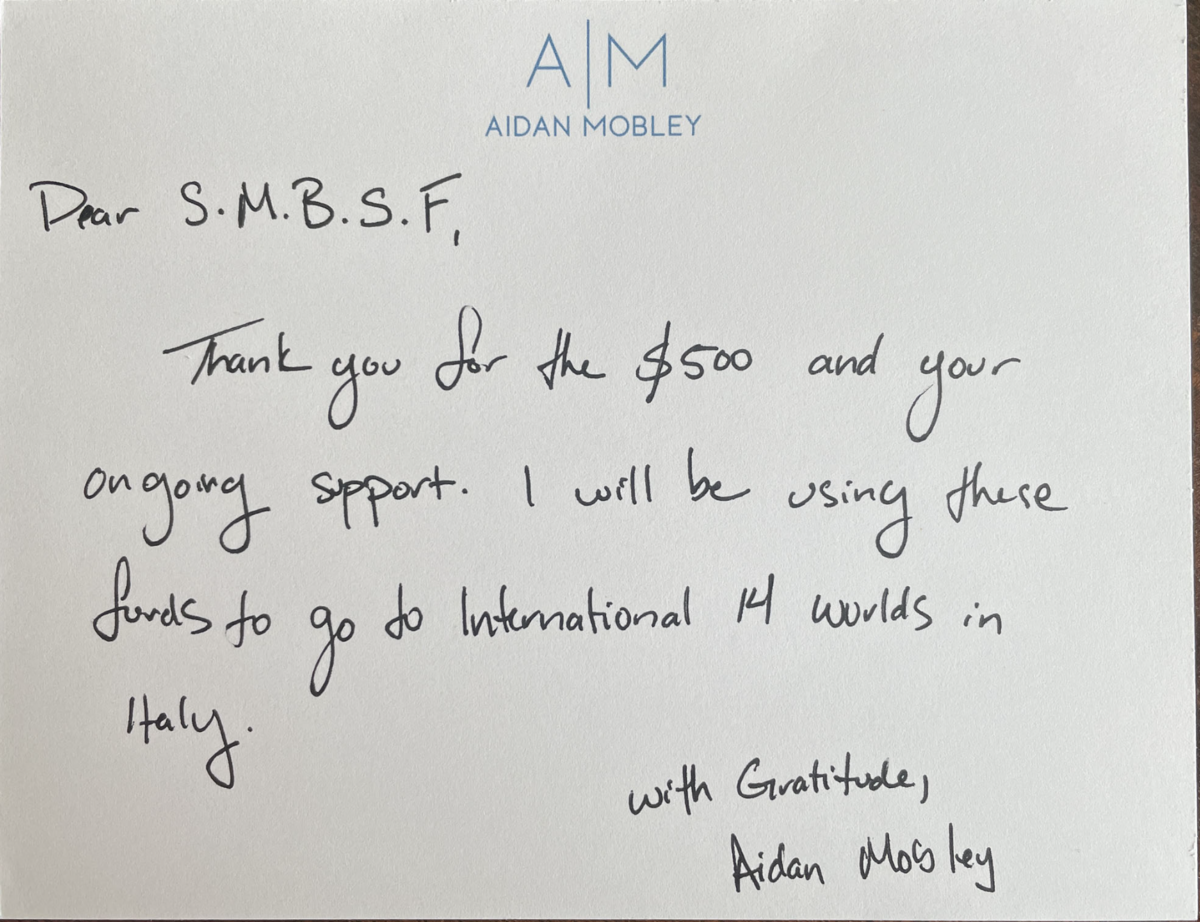 A|M
AIDAN MOBLEY
Dear S.M.B.S.F,
Thank you for the $500 and your
ongoing support. I will be using these
funds to go to International 14 worlds in
Italy.
with Gratitude,
Aidan Mobley